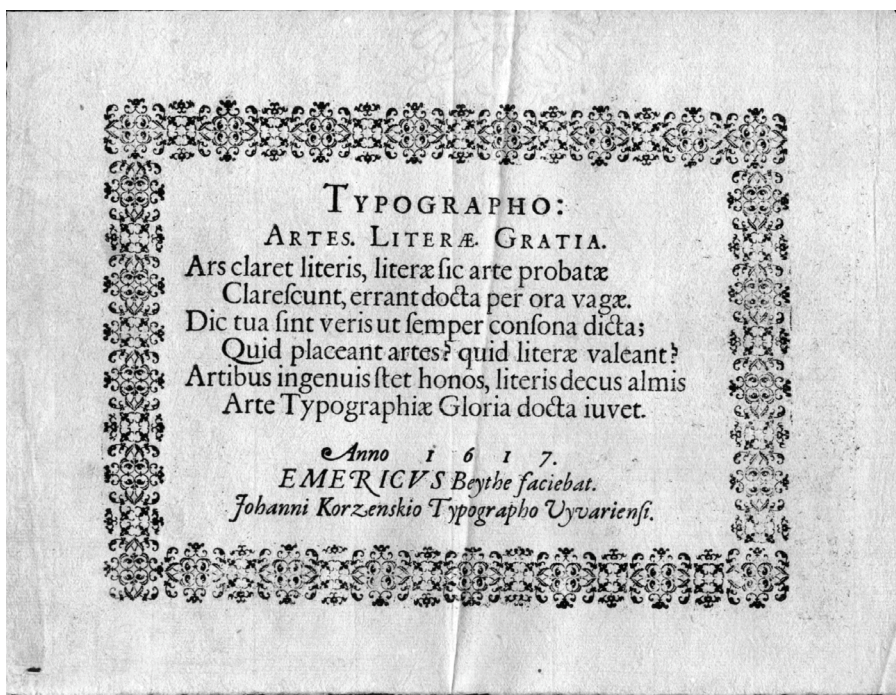 TYPOGRAPHO:
ARTES. LITERÆ. GRATIA.
Ars claret literis, literæ ſic arte probatæ
Clareſcunt, errant docta per ora vagæ.
Dic tua ſint veris ut ſemper conſona dicta;
Quid placeant artes? quid literæ valeant?
Artibus ingenuis ſtet honos, literis decus almis
Arte Typographiæ Gloria docta iuvet.
Anno 1 6 1 7.
EMERICVS Beythe faciebat.
Johanni Korzenskio Typographo Vyvarienſi.